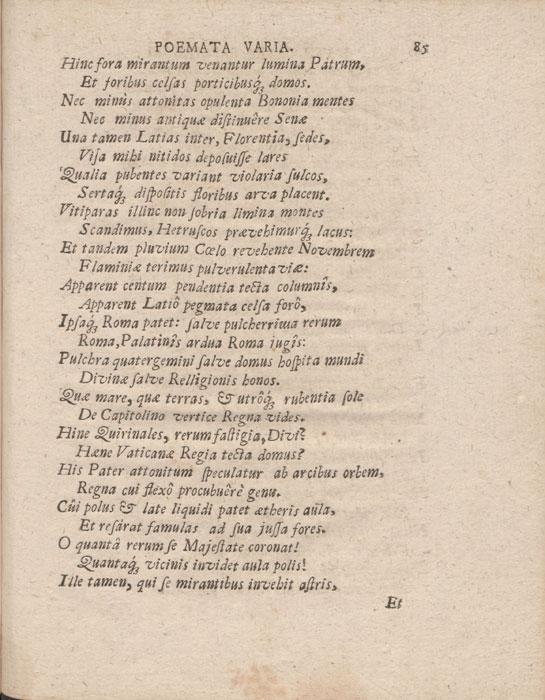 POEMATA VARIA. 85
Hinc fora mirantum venantur lumina Patrum,
Et foribus celſas porticibusq́; domos.
Nec minùs attonitas opulenta Bononia mentes
Nec minus antiquæ diſtinuêre Senæ
Una tamen Latias inter, Florentia, ſedes,
Viſa mihi nitidos depoſuiſſe lares
Qualia pubentes variant violaria ſulcos,
Sertaq́; diſpoſitis floribus arva placent.
Vitiparas illinc non ſobria limina montes
Scandimus, Hetruſcos prævehimurq́; lacus:
Et tandem pluvium Cœlo revehente Novembrem
Flaminiæ terimus pulverulenta viæ:
Apparent centum pendentia tecta columnîs,
Apparent Latiô pegmata celſa forô,
Ipſaq́; Roma patet: ſalve pulcherrima rerum
Roma, Palatinîs ardua Roma jugîs:
Pulchra quatergemini ſalve domus hoſpita mundi
Divinæ ſalve Relligionis honos.
Quæ mare, quæ terras, & utrôq́; rubentia ſole
De Capitolino vertice Regna vides.
Hine Quirinales, rerum faſtigia, Divi?
Hæne Vaticanæ Regia tecta domus?
His Pater attonitum ſpeculatur ab arcibus orbem,
Regna cui flexô procubuêrè genu.
Cûi polus & late liquidi patet ætheris aûla,
Et reſárat famulas ad ſua juſſa fores.
O quantâ rerum ſe Majeſtate coronat!
Quantaq́; vicinis invidet aula polis!
Ille tamen, qui ſe mirantibus invehit aſtris,
Et